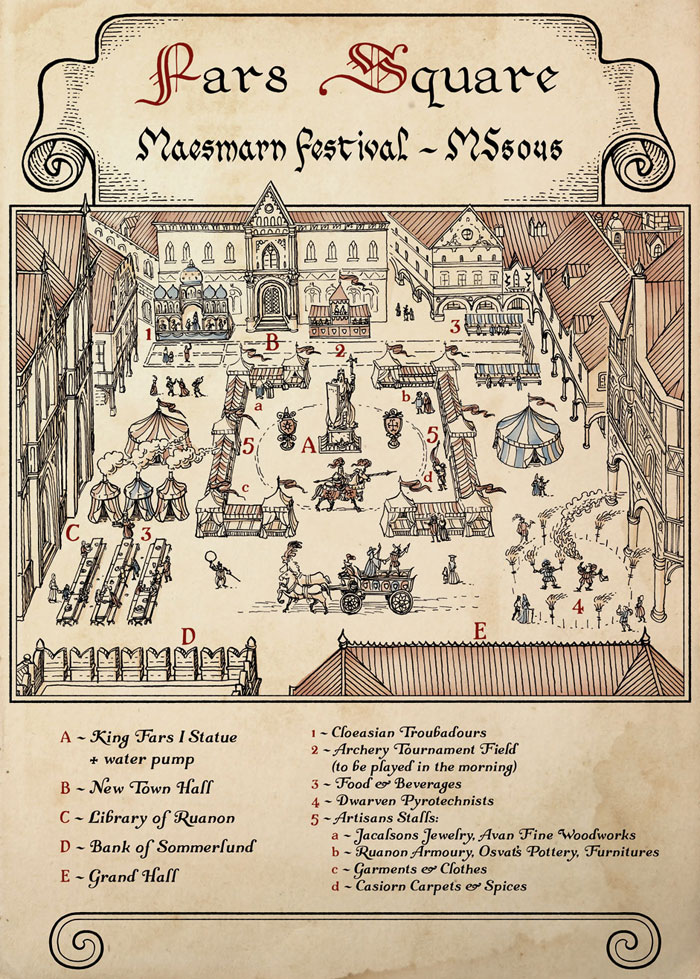 Fars Square
Maesmarn Festival ~ MS5ous
1
B
2
3
a
b
5
A
5
c
d
C
3
4
D
E
A ~ King Fars I Statue
+ water pump
B ~ New Town Hall
C ~ Library of Ruanon
D ~ Bank of Sommerlund
E ~ Grand Hall
1 ~ Cloeasian Troubadours
2 ~ Archery Tournament Field
(to be played in the morning)
3 ~ Food & Beverages
4 ~ Dwarven Pyrotechnists
5 ~ Artisans Stalls:
a ~ Jacalsons Jewelry, Avan Fine Woodworks
b ~ Ruanon Armoury, Osvat's Pottery, Furnitures
c ~ Garments & Clothes
d ~ Casiorn Carpets & Spices